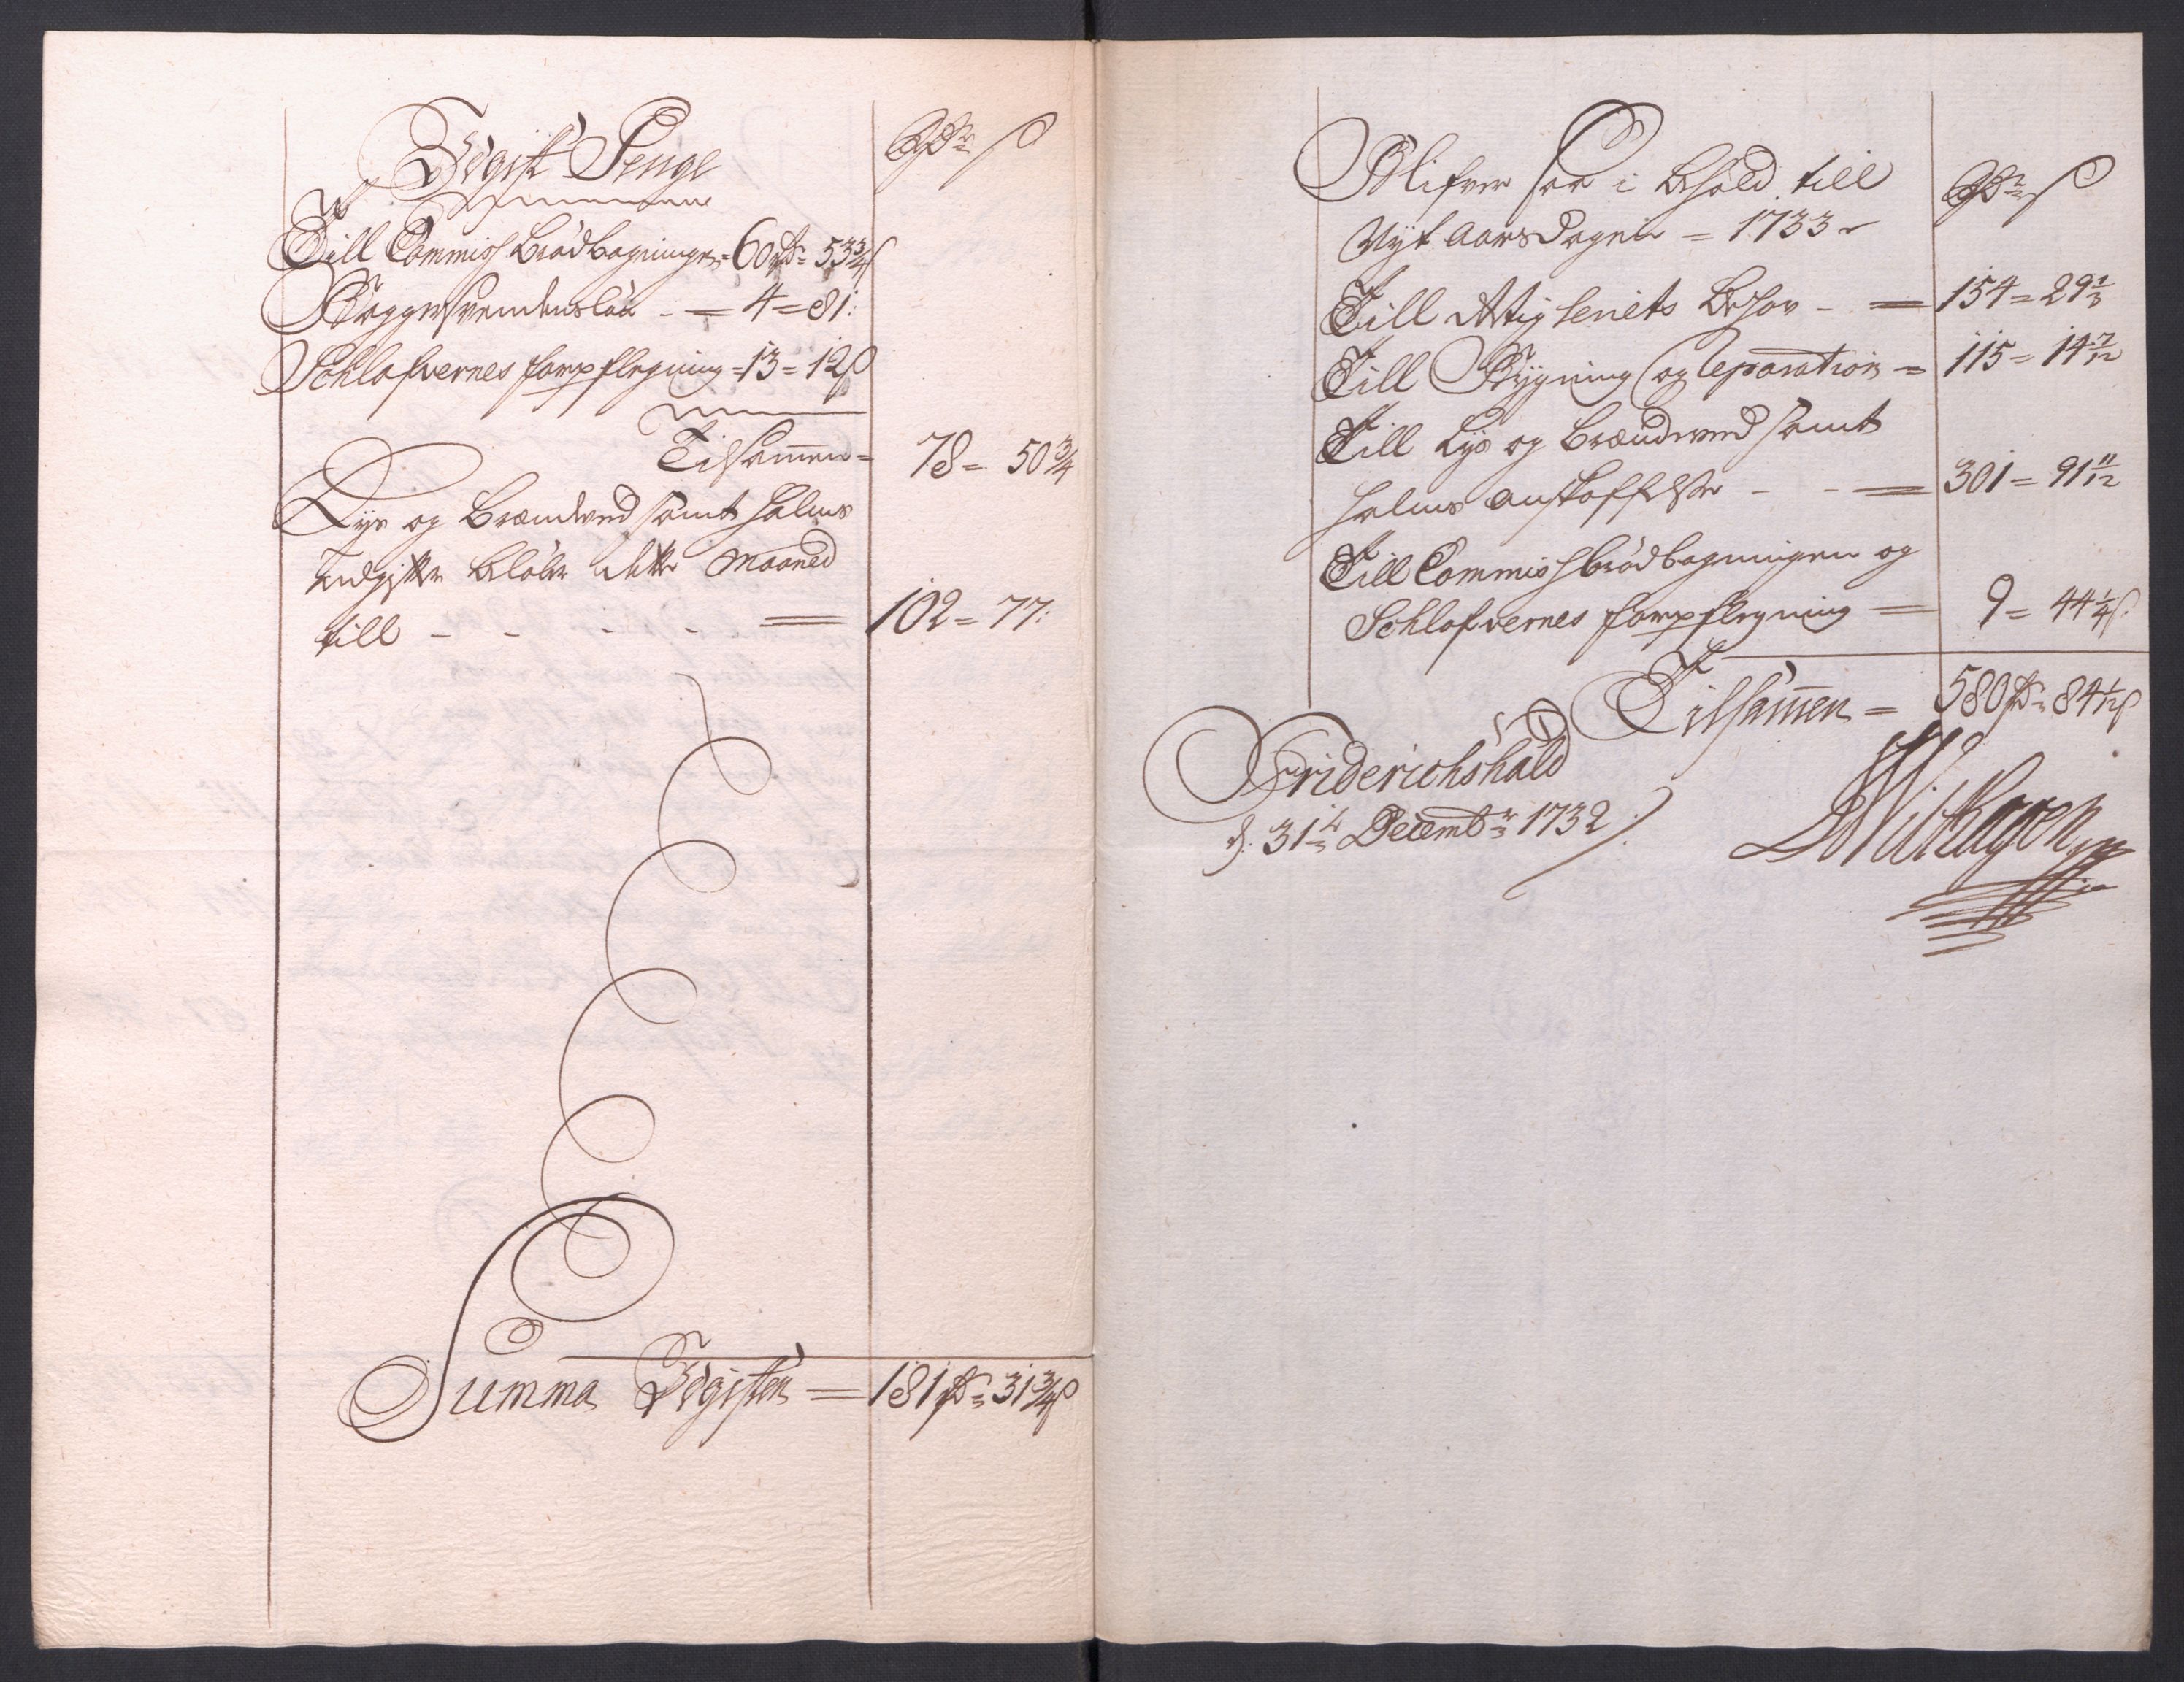 Udgift Penge
Rdr ß
Till Commiss Brødbagningen = 60 rd = 53 3/4 ß
Baggersvendens løn - = 4 = 81:
Schlafvernes forpflegning = 13 = 12 ß
Tilsammen = 78 = 50 3/4
Lys og Brændeved samt halms
udgifter beløber dette Maaned
till - - - - = 102 = 77:
Summa Udgiften = 181 rd = 31 3/4 ß
Blifver saa i behold till
Rdr ß
Nyt Aars Dagen = 1733
Till Artigleriets Behov - = 154 = 29 1/3
Till Bygning og Reparation = 115 = 14 7/12
Till Lys og Brændeved samt
halms anskaffelse - - = 301 = 91 11/12
Till Commissbrødbagningen og
Schlafvernes forpflegning = 9 = 44 1/4 ß
Tilsammen = 580 rd = 84 1/12 ß
Friderichshald
d. 31 Decembr 1732